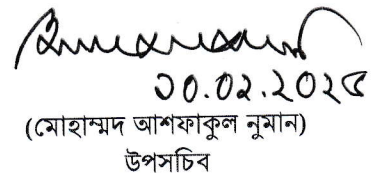 ১০.০২.২০২৫
(মোহাম্মদ আশফাকুল নুমান)
উপসচিব